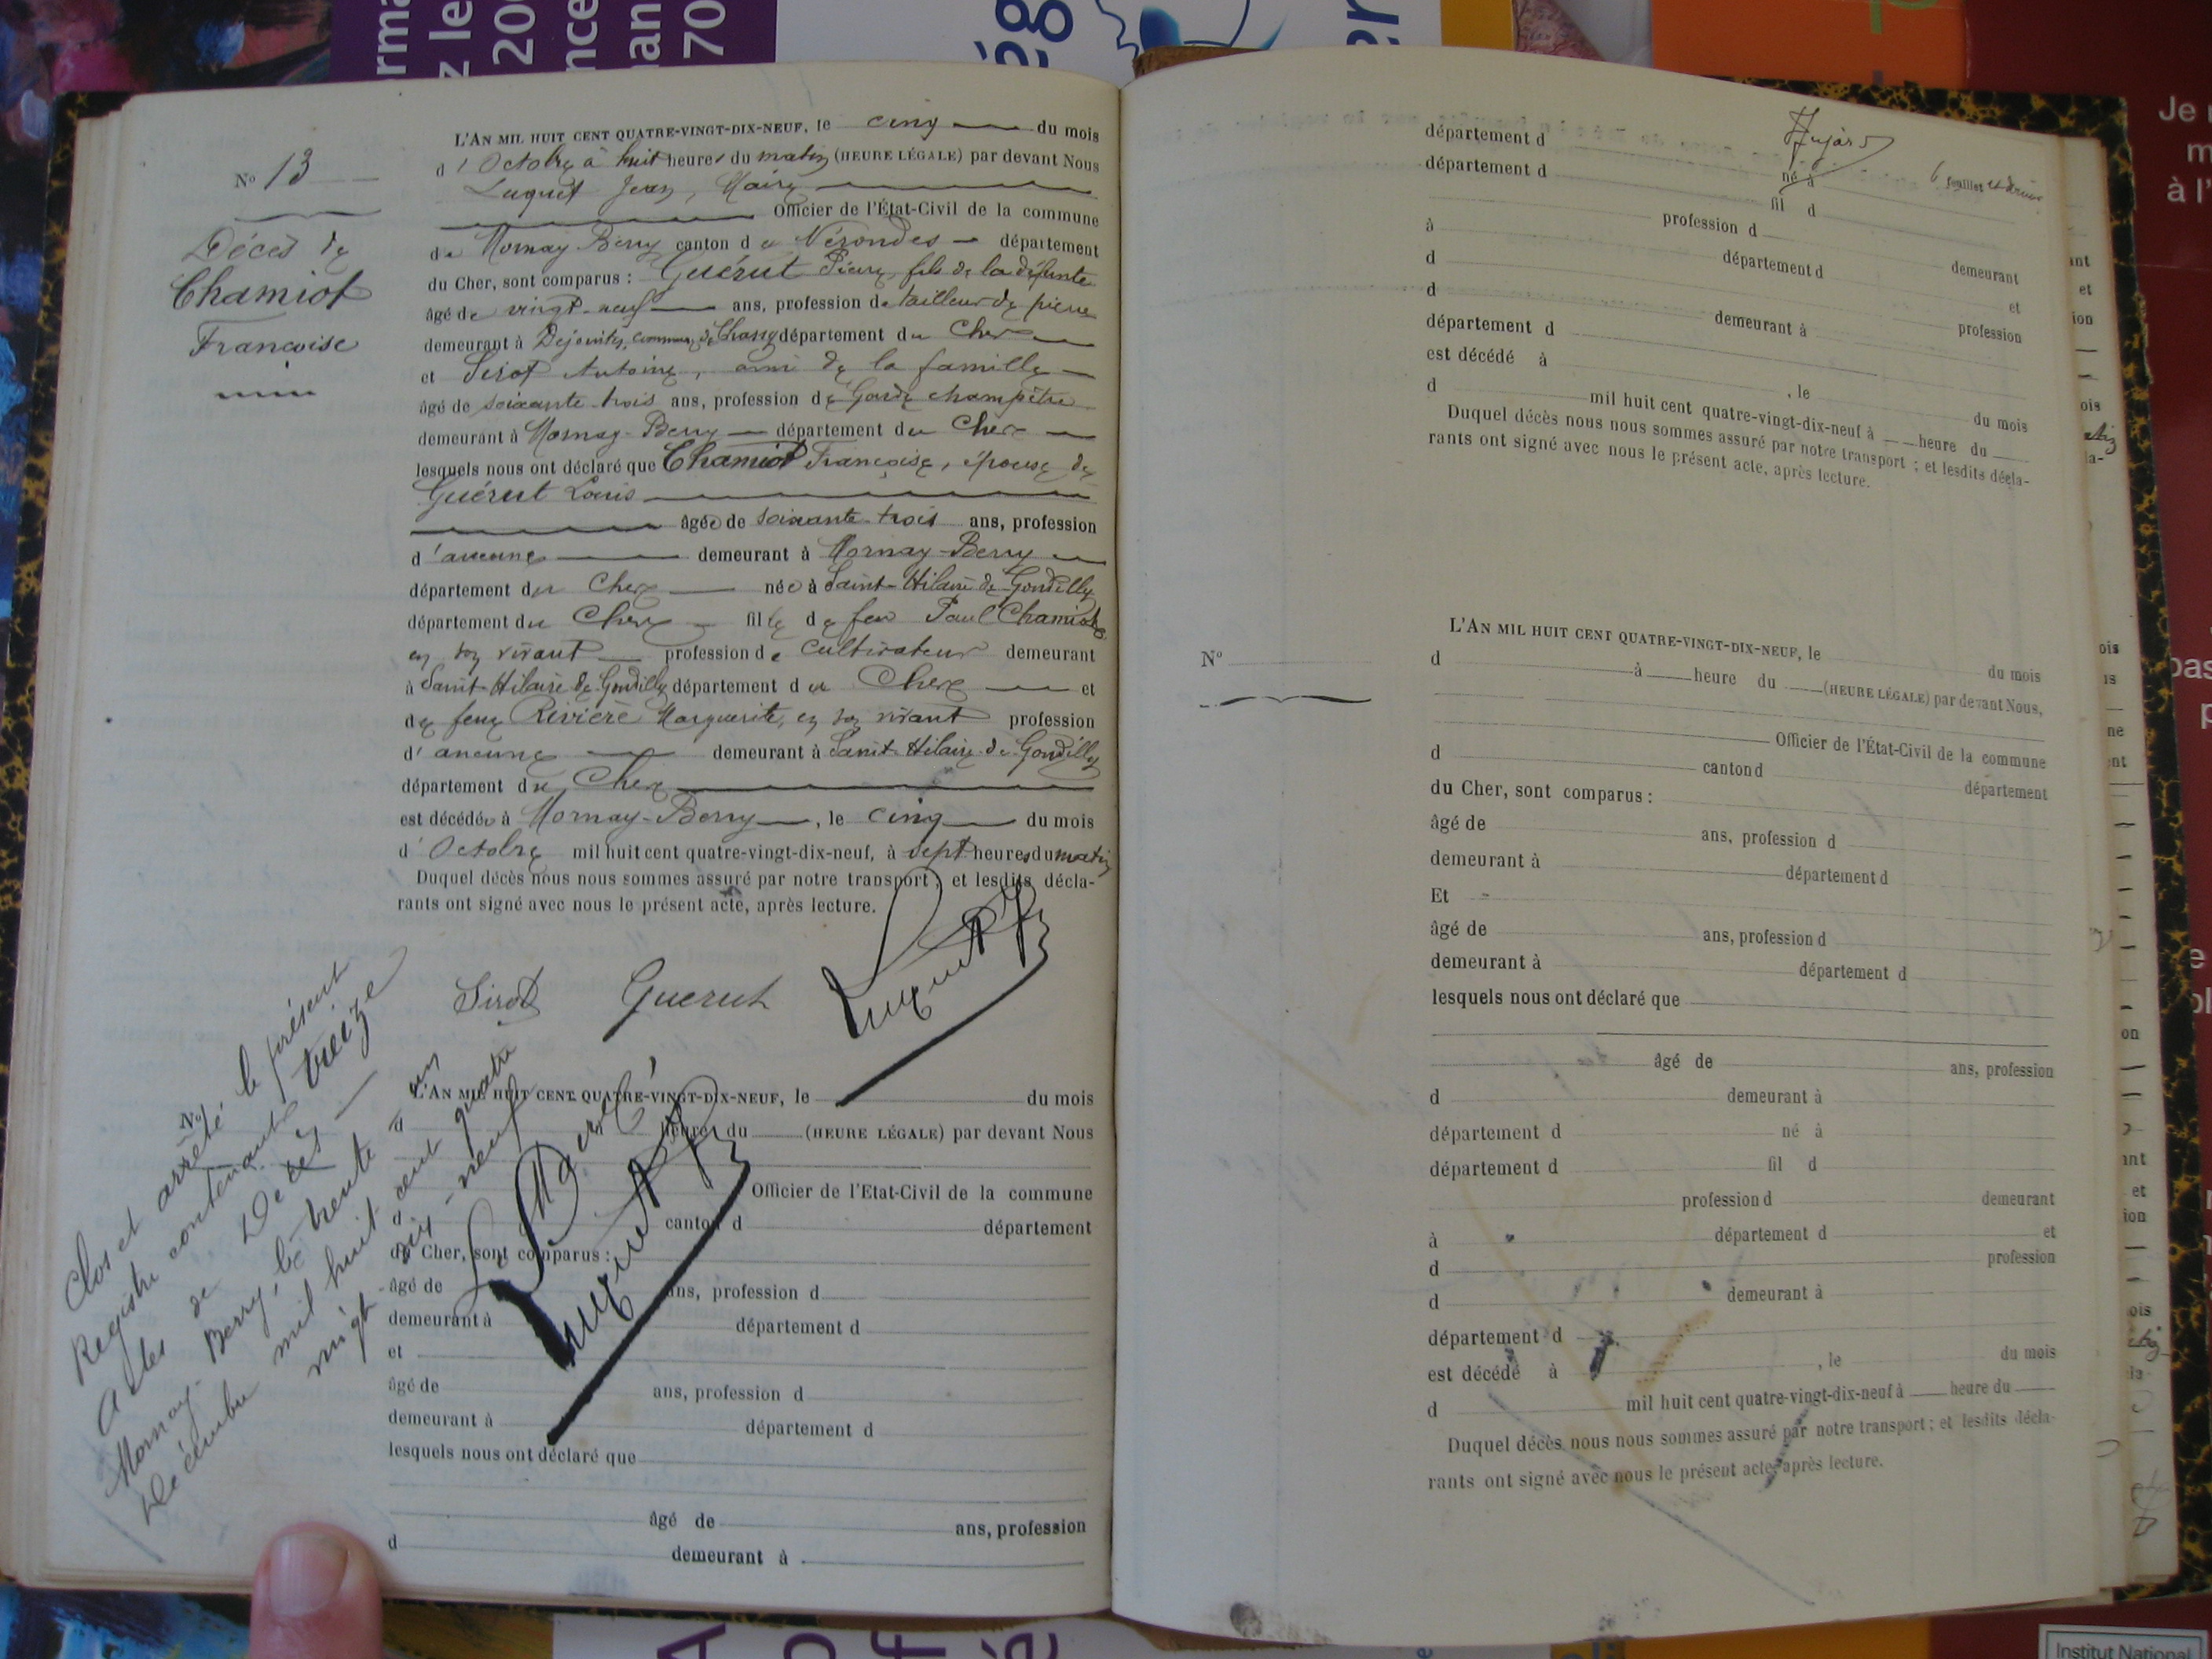 N° 13
Décès de
Chamiot
Françoise
L'AN MIL HUIT CENT QUATRE-VINGT-DIX-NEUF, le cinq du mois
d'Octobre à huit heures du matin (HEURE LÉGALE) par devant Nous
Luquet Jean, Maire
Officier de l'État-Civil de la commune
de Mornay Berry canton de Nérondes département
du Cher, sont comparus : Guérut Pierre, fils de la défunte
âgé de vingt-neuf ans, profession de tailleur de pierre
demeurant à Dejointes, commune de Chassy département du Cher
et Sirot Antoine, ami de la famille
âgé de soixante-trois ans, profession de Garde champêtre
demeurant à Mornay-Berry département du Cher
lesquels nous ont déclaré que Chamiot Françoise, épouse de
Guérut Louis
âgée de soixante-trois ans, profession
d'aucune demeurant à Mornay-Berry
département du Cher née à Saint-Hilaire de Gondilly
département du Cher fille de feu Paul Chamiot
en son vivant profession de cultivateur demeurant
à Saint-Hilaire de Gondilly département du Cher et
de feue Rivière Marguerite, en son vivant profession
d'aucune demeurant à Saint-Hilaire-de-Gondilly
département du Cher
est décédée à Mornay-Berry, le cinq du mois
d'Octobre mil huit cent quatre-vingt-dix-neuf, à sept heures du matin
Duquel décès nous nous sommes assuré par notre transport ; et lesdits décla-
rants ont signé avec nous le présent acte, après lecture.
Sirot Guerut Luquet
N°
Clos et arrêté le présent
Registre contenant treize
Actes de Décès
Mornay-Berry, le trente un
Décembre mil huit cent quatre
vingt-dix-neuf
Le Maire,
Luquet
L'AN MIL HUIT CENT QUATRE-VINGT-DIX-NEUF, le du mois
d à heure du (HEURE LÉGALE) par devant Nous
Officier de l'État-Civil de la commune
d canton d département
du Cher, sont comparus :
âgé de ans, profession d
demeurant à département d
et
âgé de ans, profession d
demeurant à département d
lesquels nous ont déclaré que
âgé de ans, profession
d demeurant à
6 feuillet et dernier
département d
département d né à
fil d
profession d
à département d demeurant
d et
d demeurant à profession
département d
est décédé à , le
d mil huit cent quatre-vingt-dix-neuf à heure du du mois
Duquel décès nous nous sommes assuré par notre transport ; et lesdits décla-
rants ont signé avec nous le présent acte, après lecture.
N°
L'AN MIL HUIT CENT QUATRE-VINGT-DIX-NEUF, le du mois
d à heure du (HEURE LÉGALE) par devant Nous,
Officier de l'État-Civil de la commune
d canton d département
du Cher, sont comparus :
âgé de ans, profession d
demeurant à département d
Et
âgé de ans, profession d
demeurant à département d
lesquels nous ont déclaré que
âgé de ans, profession
d demeurant à
département d né à
département d fil d
profession d demeurant
à département d et
d profession
d demeurant à
département d
est décédé à , le du mois
d mil huit cent quatre-vingt-dix-neuf à heure du
Duquel décès nous nous sommes assuré par notre transport ; et lesdits décla-
rants ont signé avec nous le présent acte, après lecture.
Institut National